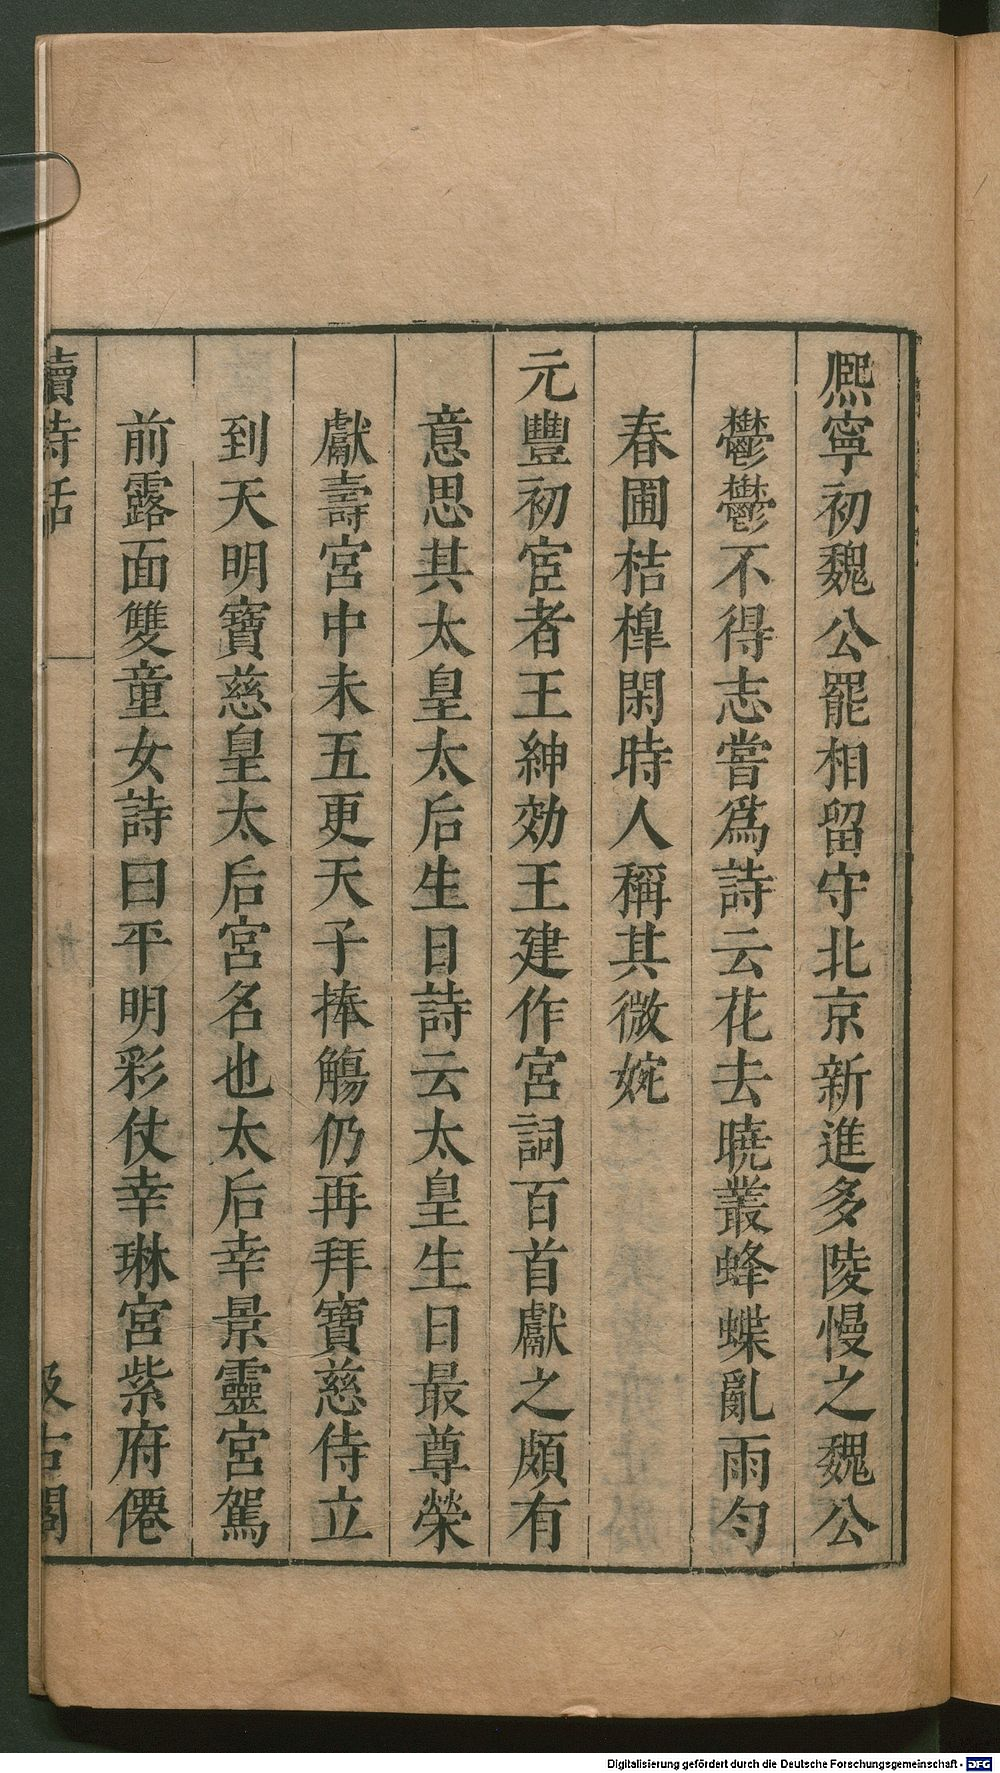 熈寧初魏公罷相留守北京新進多陵慢之魏公
鬱鬱不得志嘗爲詩云花去曉叢蜂蝶亂雨勻
春圃桔橰閑時人稱其微婉
元豐初宦者王紳効王建作宮詞百首獻之頗有
意思其太皇太后生日詩云太皇生日最尊榮
獻壽宮中未五更天子捧觴仍再拜寶慈侍立
到天明寶慈皇太后宮名也太后幸景靈宮駕
前露面雙童女詩曰平明彩仗幸琳宮紫府僊
續詩話
汲古閣
Digitalisierung gefördert durch die Deutsche Forschungsgemeinschaft - DFG